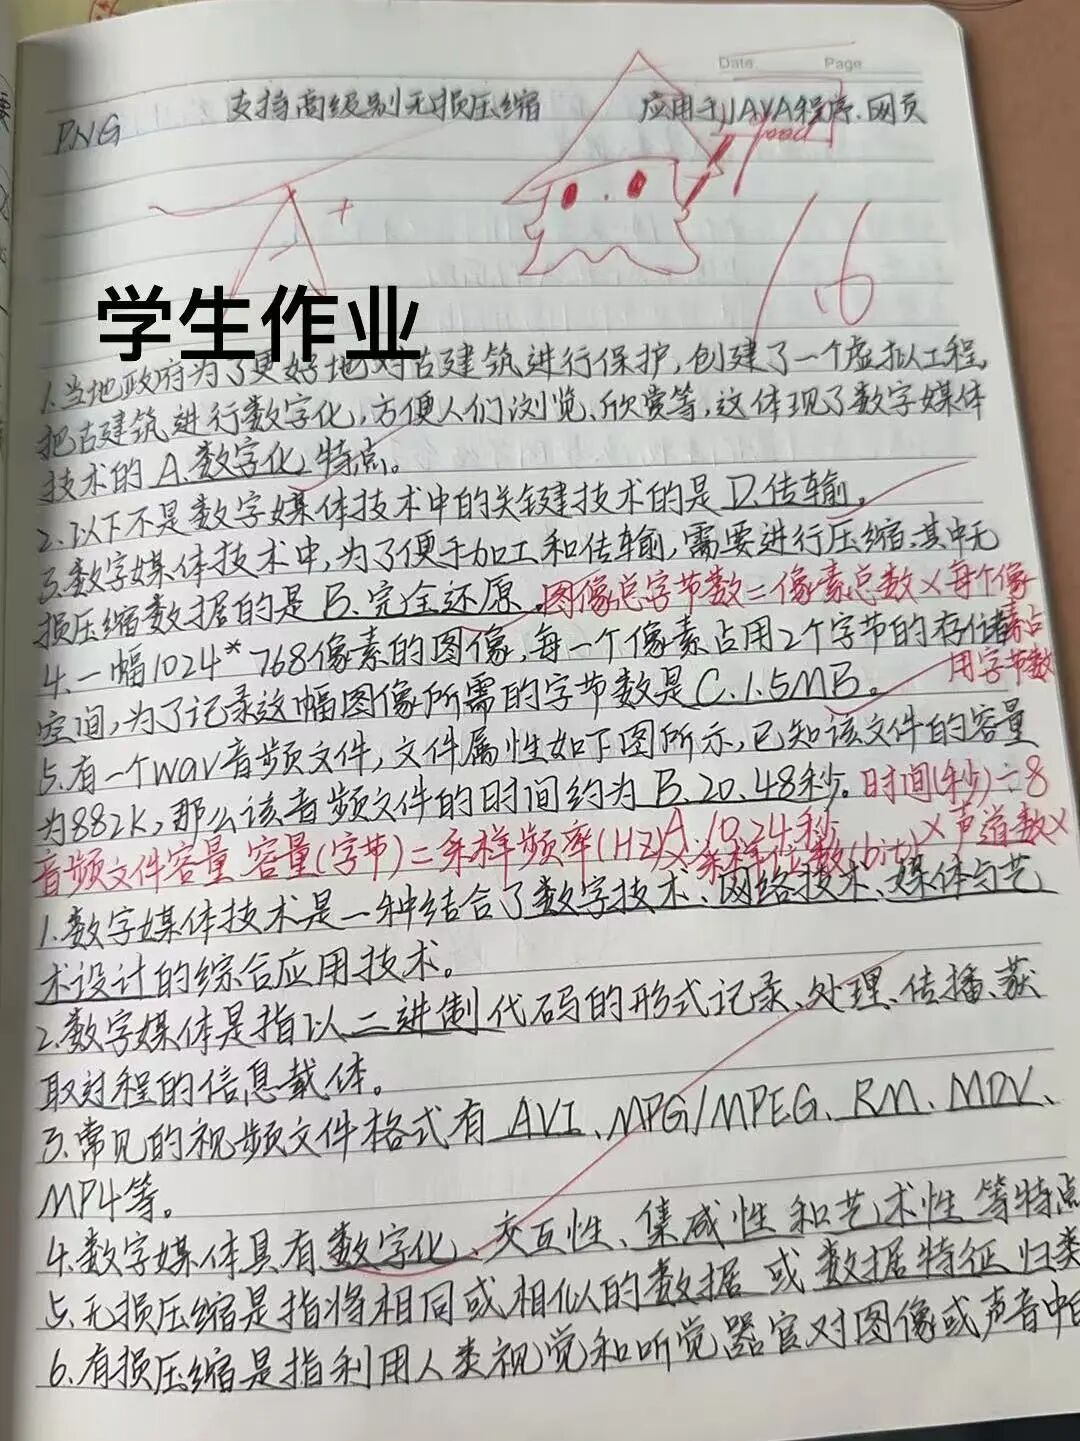 Date Page
PNG 支持高级别无损压缩 应用于JAVA程序、网页
A+
good
1.6
学生作业
1.当地政府为了更好地对古建筑进行保护,创建了一个虚拟工程,
把古建筑进行数字化,方便人们浏览、欣赏等,这体现了数字媒体
技术的 A.数字化 特点。
2.以下不是数字媒体技术中的关键技术的是 D.传输。
3.数字媒体技术中,为了便于加工和传输,需要进行压缩,其中无
损压缩数据的是 B.完全还原。图像总字节数=像素总数×每个像
4.一幅1024*768像素的图像,每一个像素占用2个字节的存储 素占
空间,为了记录这幅图像所需的字节数是 C.1.5MB。 用字节数
5.有一个wav音频文件,文件属性如下图所示,已知该文件的容量
为882K,那么该音频文件的时间约为 B.20.48秒。时间(秒)÷8
A.10.24秒
音频文件容量 容量(字节)=采样频率(HZ)×采样位数(bit)×声道数×
1.数字媒体技术是一种结合了数字技术、网络技术、媒体与艺
术设计的综合应用技术。
2.数字媒体是指以二进制代码的形式记录、处理、传播、获
取过程的信息载体。
3.常见的视频文件格式有 AVI、MPG/MPEG、RM、MOV、
MP4等。
4.数字媒体具有数字化、交互性、集成性和艺术性 等特点
5.无损压缩是指将相同或相似的数据 或 数据特征 归类
6.有损压缩是指利用人类视觉和听觉器官对图像或声音中